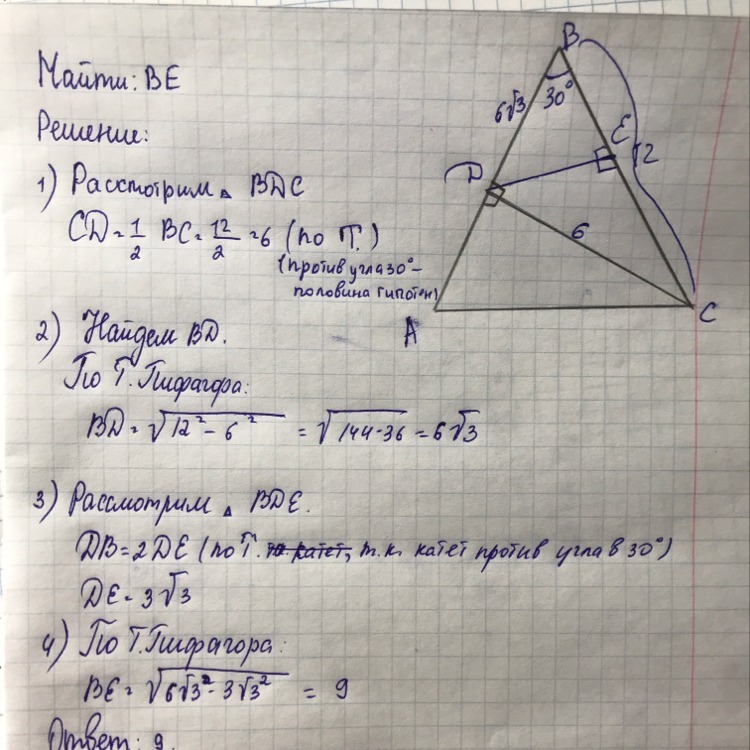 Найти: BE
Решение:
1) Рассмотрим △ BDC
CD = 1/2 BC = 12/2 = 6 (по Т.)
(против угла 30° –
половина гипотен)
2) Найдем BD.
По Т. Пифагора:
BD = √12² - 6² = √144-36 = 6√3
3) Рассмотрим △ BDE.
DB = 2DE (по Т. т.к. катет против угла в 30°)
DE = 3√3
4) По Т. Пифагора:
BE = √6√3² - 3√3² = 9
Ответ: 9.
B
6√3
30°
E
12
D
6
A
C